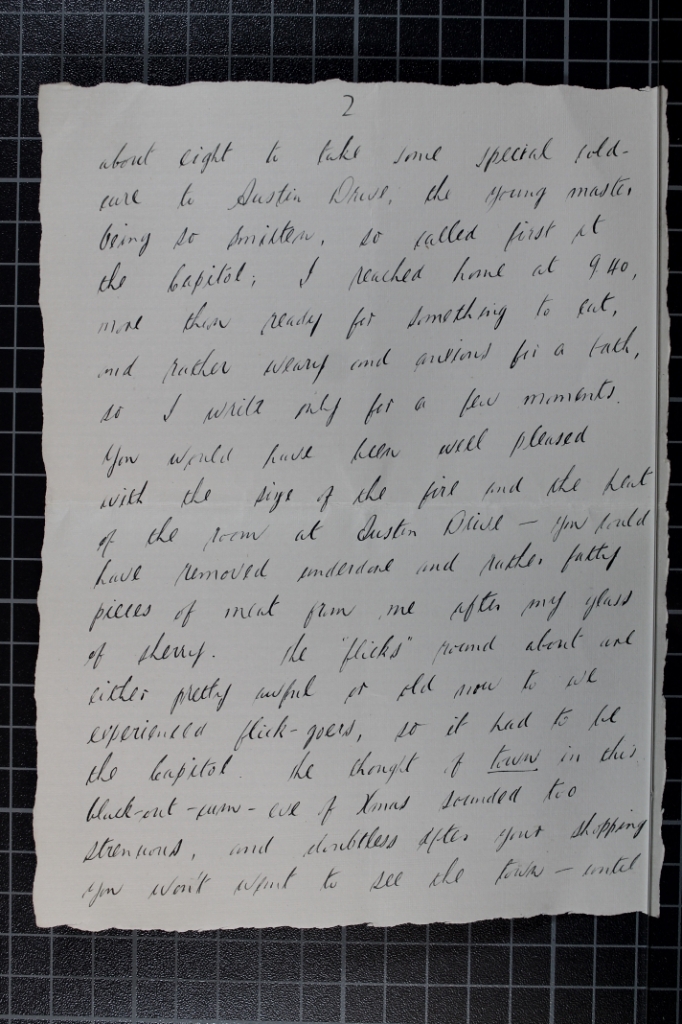 2
about eight to take some special cold-
cure to Austin Drive, the young master
being so smitten, so called first at
the Capitol; I reached home at 9.40,
more than ready for something to eat,
and rather weary and anxious for a bath,
so I write only for a few moments.
You would have been well pleased
with the size of the fire and the heat
of the room at Austin Drive — you could
have removed underdone and rather fatty
pieces of meat from me after my glass
of sherry. The "flicks" round about are
either pretty awful or old now to we
experienced flick-goers, so it had to be
the Capitol. The thought of town in this
black-out-cum-eve of Xmas sounded too
strenuous, and doubtless after your shopping
you won't want to see the town — until